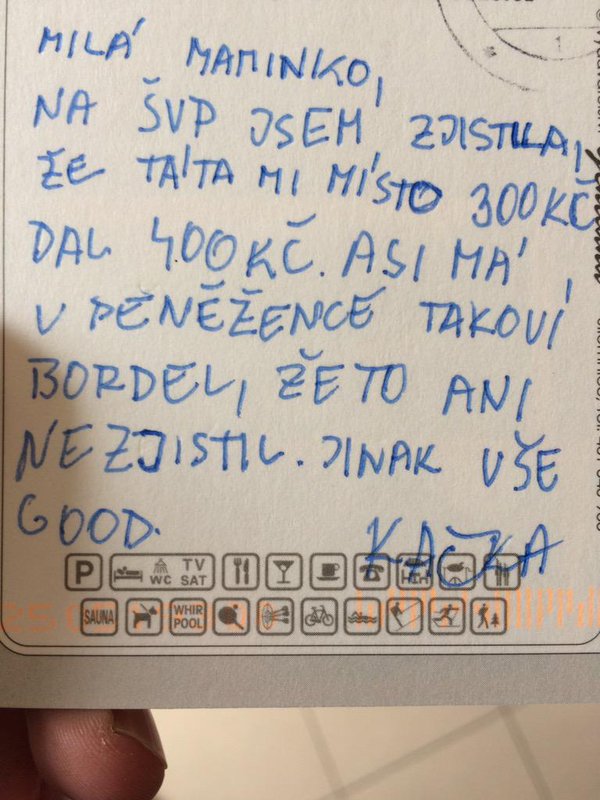 MILÁ MAMINKO,
NA ŠVP JSEM ZJISTILA,
ŽE TÁTA MI MÍSTO 300KČ
DAL 400KČ. ASI MÁ
V PENĚŽENCE TAKOVÍ
BORDEL, ŽE TO ANI
NEZJISTIL. JINAK VŠE
GOOD.
KAČKA
P
WC
TV
SAT
SAUNA
WHIR
POOL